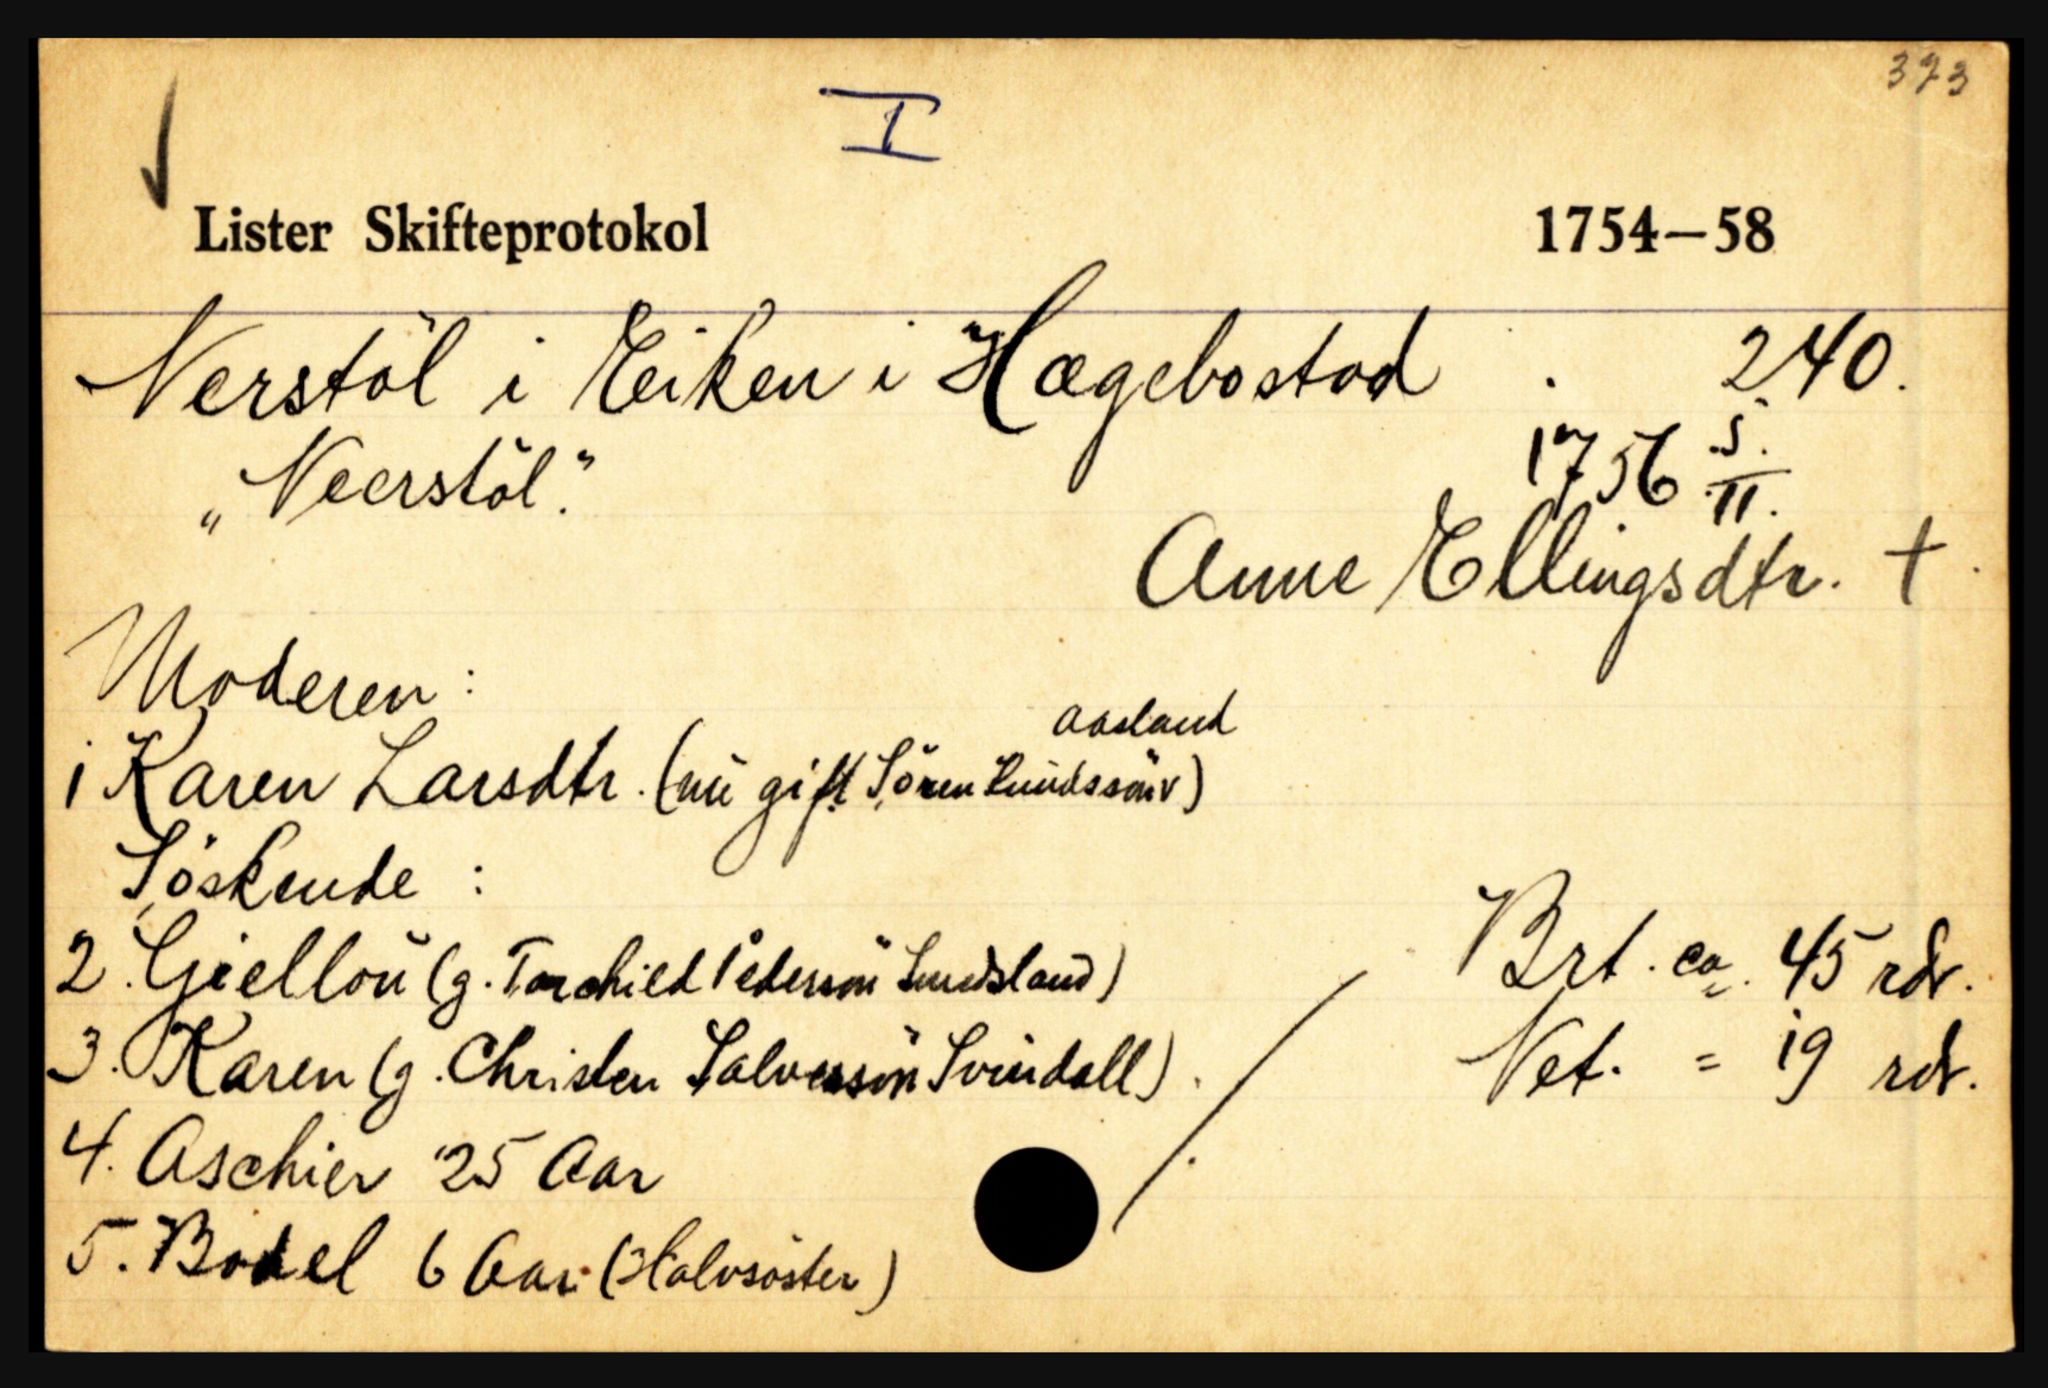 373
I
Lister Skifteprotokol 1754—58
Nerstöl i Eiken i Hægebostad . 240.
"Neerstöl". 1756 5./II.
Anne Ellingsdtr. †
Moderen:
1 Karen Larsdtr. (nu gift Sören Knudssön Aasland)
Söskende:
2. Giellou (g. Torchild Pedersön Sundsland) Brt. ca. 45 rdr.
3. Karen (g. Christen Salvessön Svindall). Net. = 19 rdr.
4. Aschier 25 Aar
5. Bodel 6 Aar (Halvsöster)